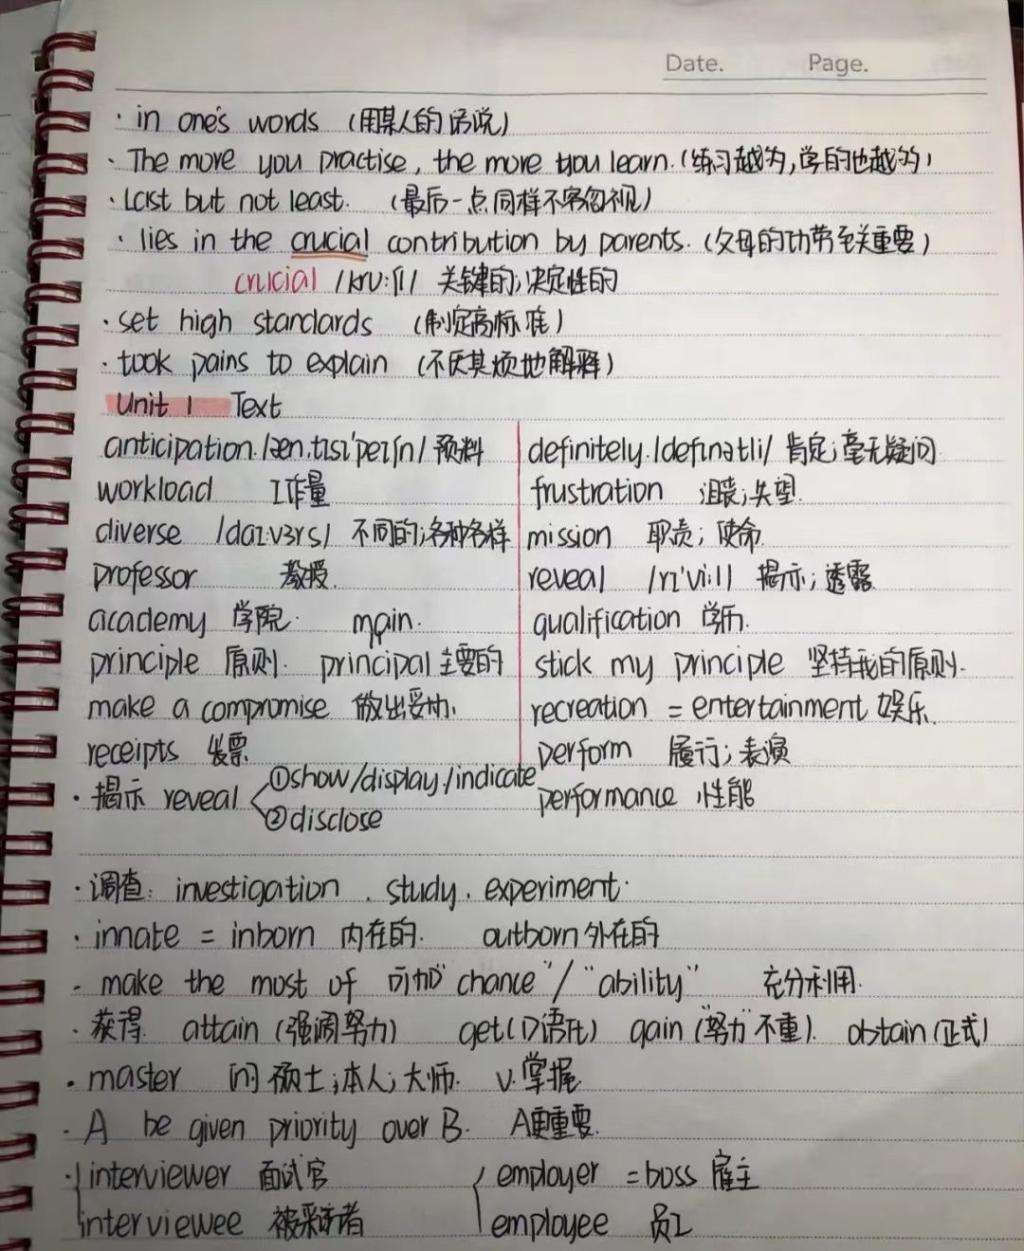 Date. Page.
· in one's words (用某人的话说)
· The more you practise, the more you learn. (练习越多,学的也越多)
· Last but not least. (最后一点同样不容忽视)
· lies in the crucial contribution by parents. (父母的功劳至关重要)
crucial /kru:ʃl/ 关键的;决定性的
· set high standards (制定高标准)
· took pains to explain (不厌其烦地解释)
Unit 1 Text
anticipation /æn.tɪsɪ'peɪʃn/ 预料
workload 工作量
diverse /daɪ.vɜrs/ 不同的;各种各样
professor 教授.
academy 学院. main.
principle 原则. principal 主要的
make a compromise 做出妥协.
receipts 发票
definitely /defɪnətli/ 肯定;毫无疑问.
frustration 沮丧;失望.
mission 职责;使命.
reveal /rɪ'vi:l/ 揭示;透露.
qualification 学历.
stick my principle 坚持我的原则.
recreation = entertainment 娱乐.
perform 履行;表演
performance 性能
· 揭示 reveal ①show/display/indicate
②disclose
· 调查: investigation . study . experiment.
· innate = inborn 内在的. outborn 外在的
· make the most of 可加"chance"/"ability" 充分利用.
· 获得. attain (强调努力) get(口语化) gain ("努力"不重). obtain (正式)
· master n 硕士;本人;大师. v.掌握
· A be given priority over B. A更重要.
· interviewer 面试官 employer = boss 雇主
interviewee 被采访者 employee 员工